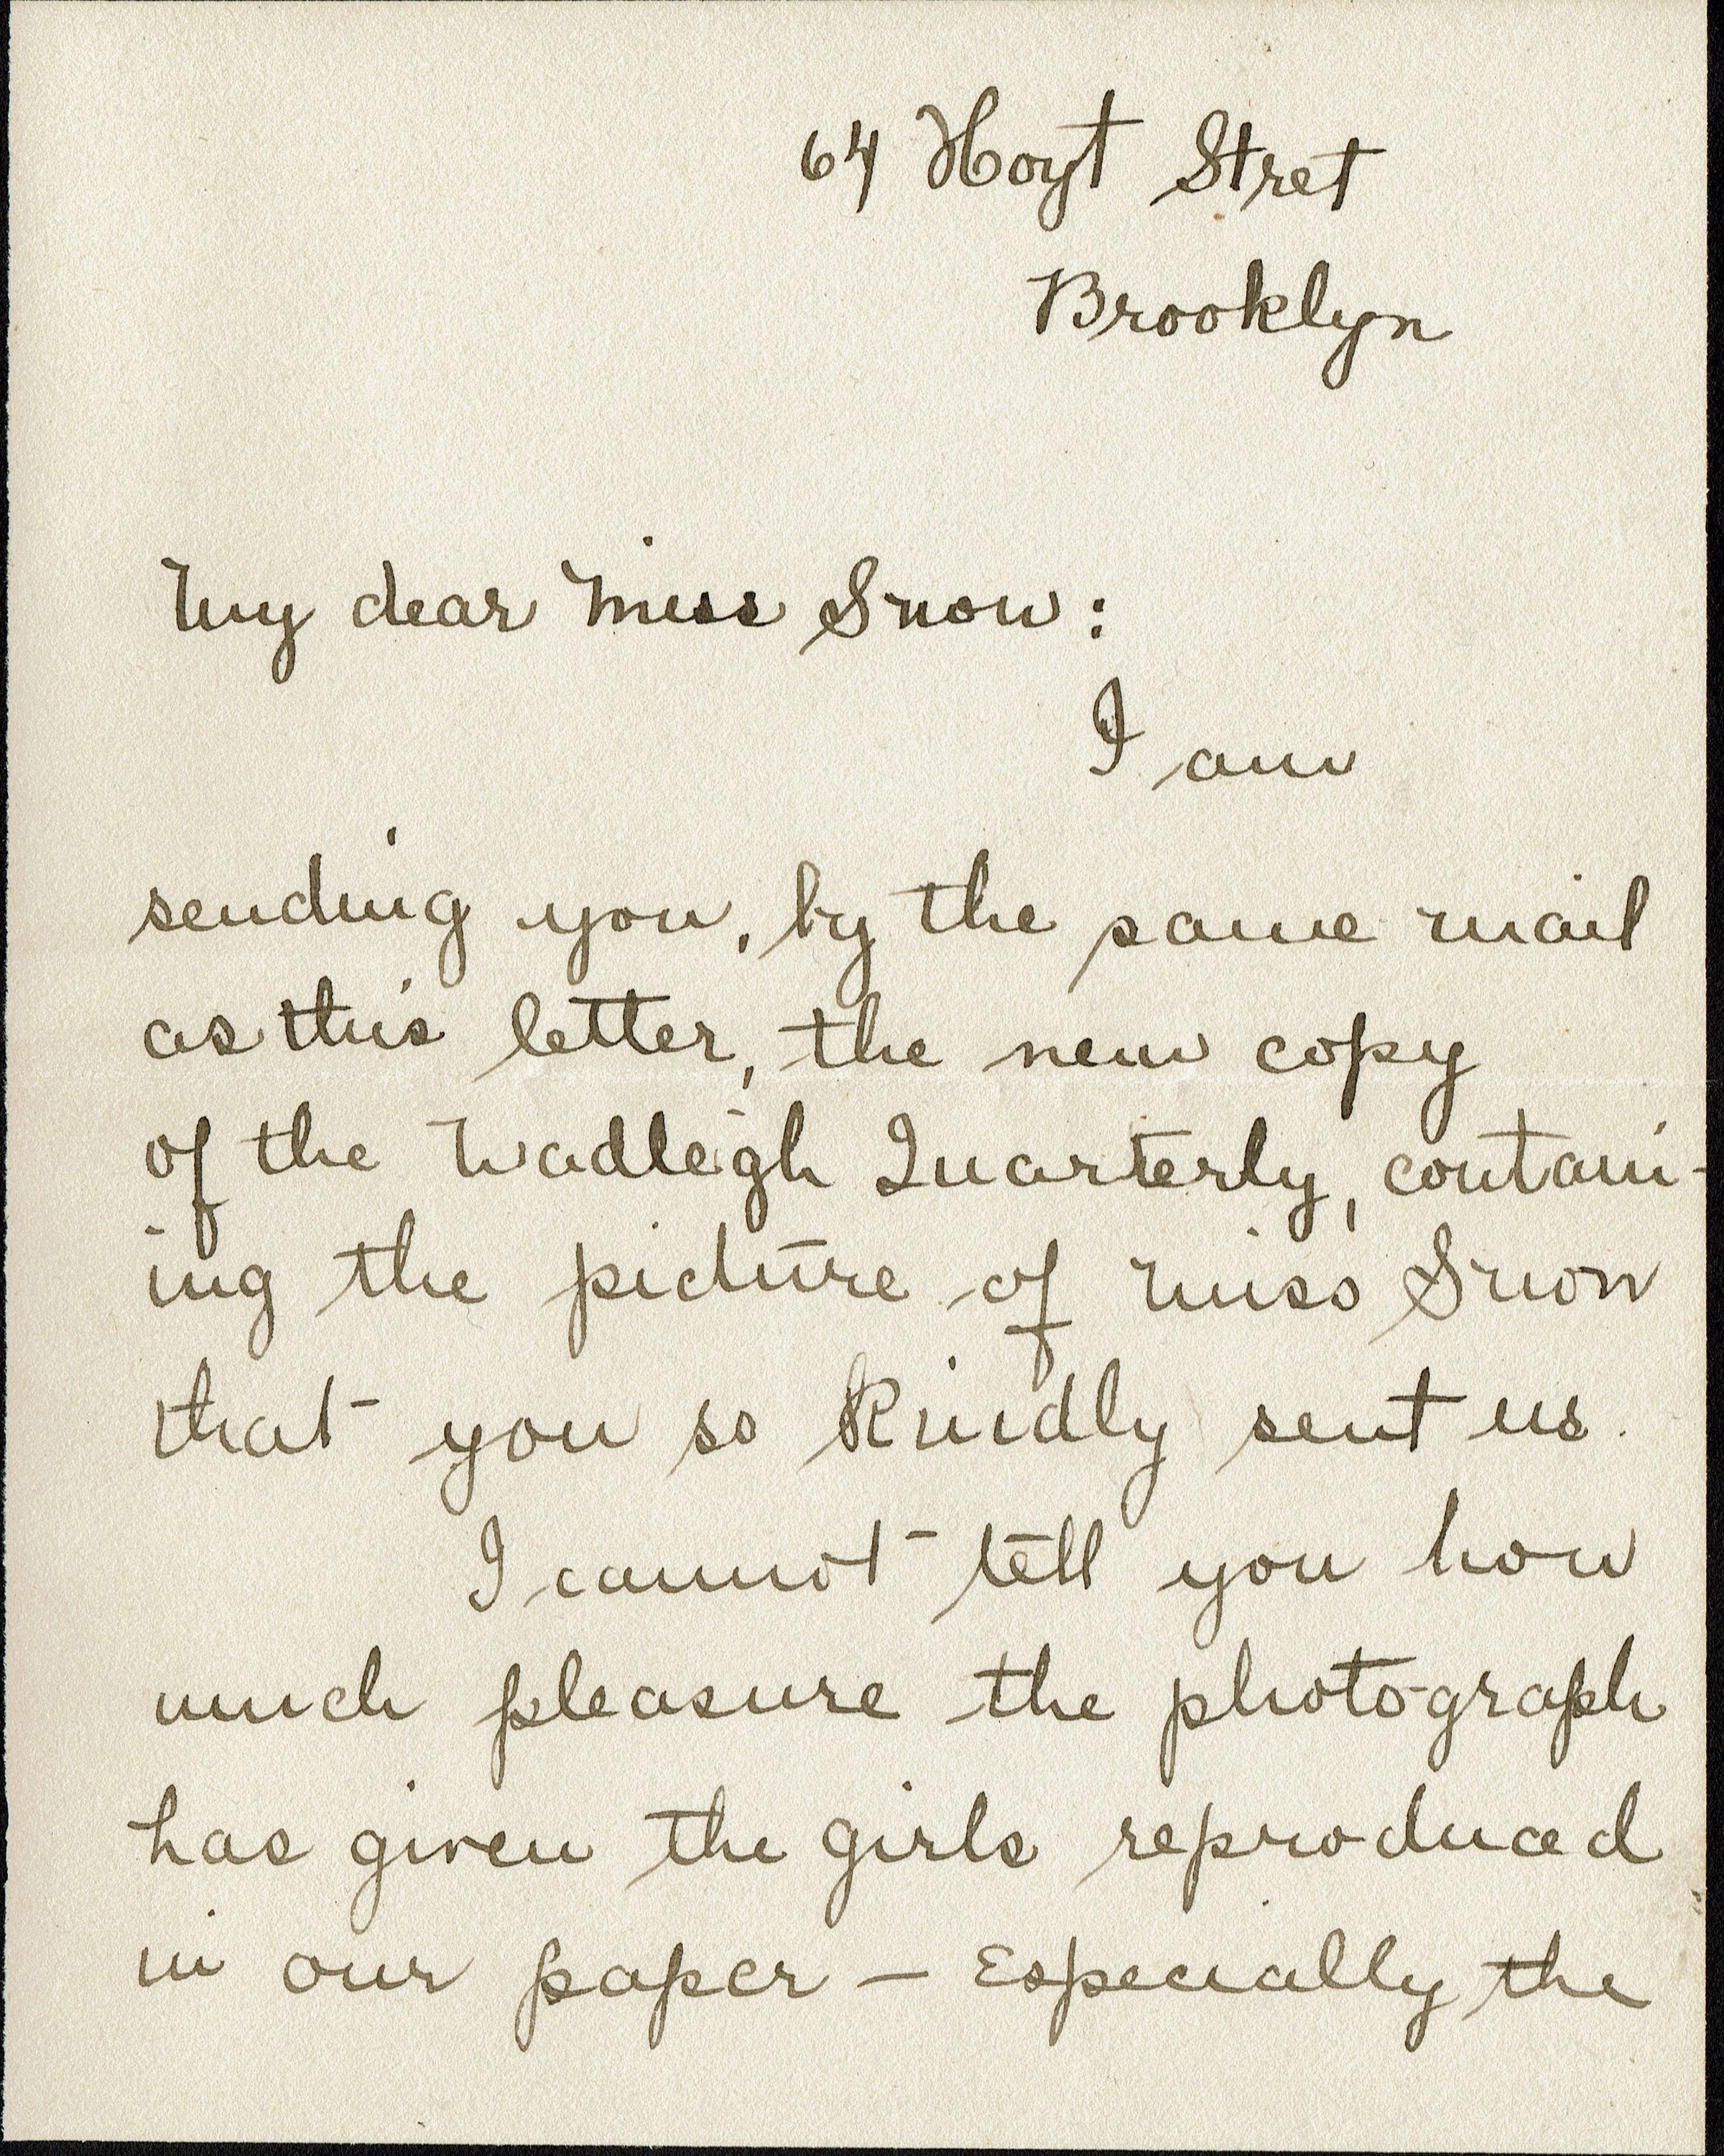 64 Hoyt Stret
Brooklyn
My dear Miss Snow:
I am
sending you, by the same mail
as this letter, the new copy
of the Wadleigh Quarterly, contain-
ing the picture of Miss Snow
that you so kindly sent us.
I cannot tell you how
much pleasure the photograph
has given the girls reproduced
in our paper — Especially the